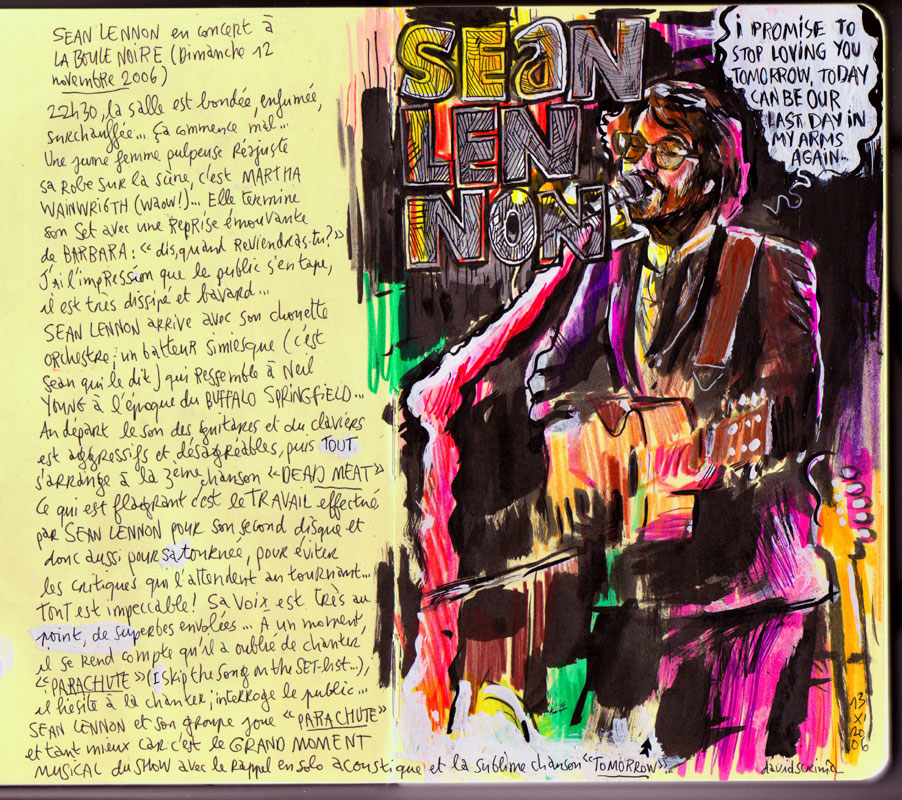 SEAN LENNON en concert à
LA BOULE NOIRE (Dimanche 12
novembre 2006)
22h30, la salle est bondée, enfumée,
surchauffée... ça commence mal...
Une jeune femme pulpeuse réajuste
sa robe sur la scène, c'est MARTHA
WAINWRIGTH (WAOW!)... Elle termine
son set avec une reprise émouvante
de BARBARA: "dis, quand reviendras-tu?"
J'ai l'impression que le public s'en tape,
il est très dissipé et bavard...
SEAN LENNON arrive avec son chouette
orchestre; un batteur simiesque (c'est
Sean qui le dit) qui ressemble à Neil
YOUNG à l'époque du BUFFALO SPRINGFIELD...
Au départ le son des guitares et du claviers
est aggressifs et désagréables, puis TOUT
s'arrange à la 3ème chanson "DEAD MEAT"
Ce qui est flagrant c'est le TRAVAIL effectué
par SEAN LENNON pour son second disque et
donc aussi pour sa tournée, pour éviter
les critiques qui l'attendent au tournant...
TOUT est impeccable! Sa voix est très au
point, de superbes envolées... A un moment
il se rend compte qu'il a oublié de chanter
"PARACHUTE" (I skip the song on the SET-list...),
il hésite à la chanter, interroge le public...
SEAN LENNON et son groupe joue "PARACHUTE"
et tant mieux car c'est le GRAND MOMENT
MUSICAL du SHOW avec le rappel en solo acoustique et la sublime chanson "TOMORROW"...
SEAN
LEN
NON
i PROMISE TO
STOP LOVING YOU
TOMORROW, TODAY
CAN BE OUR
LAST DAY IN
MY ARMS
AGAIN...
13
XI
20
06